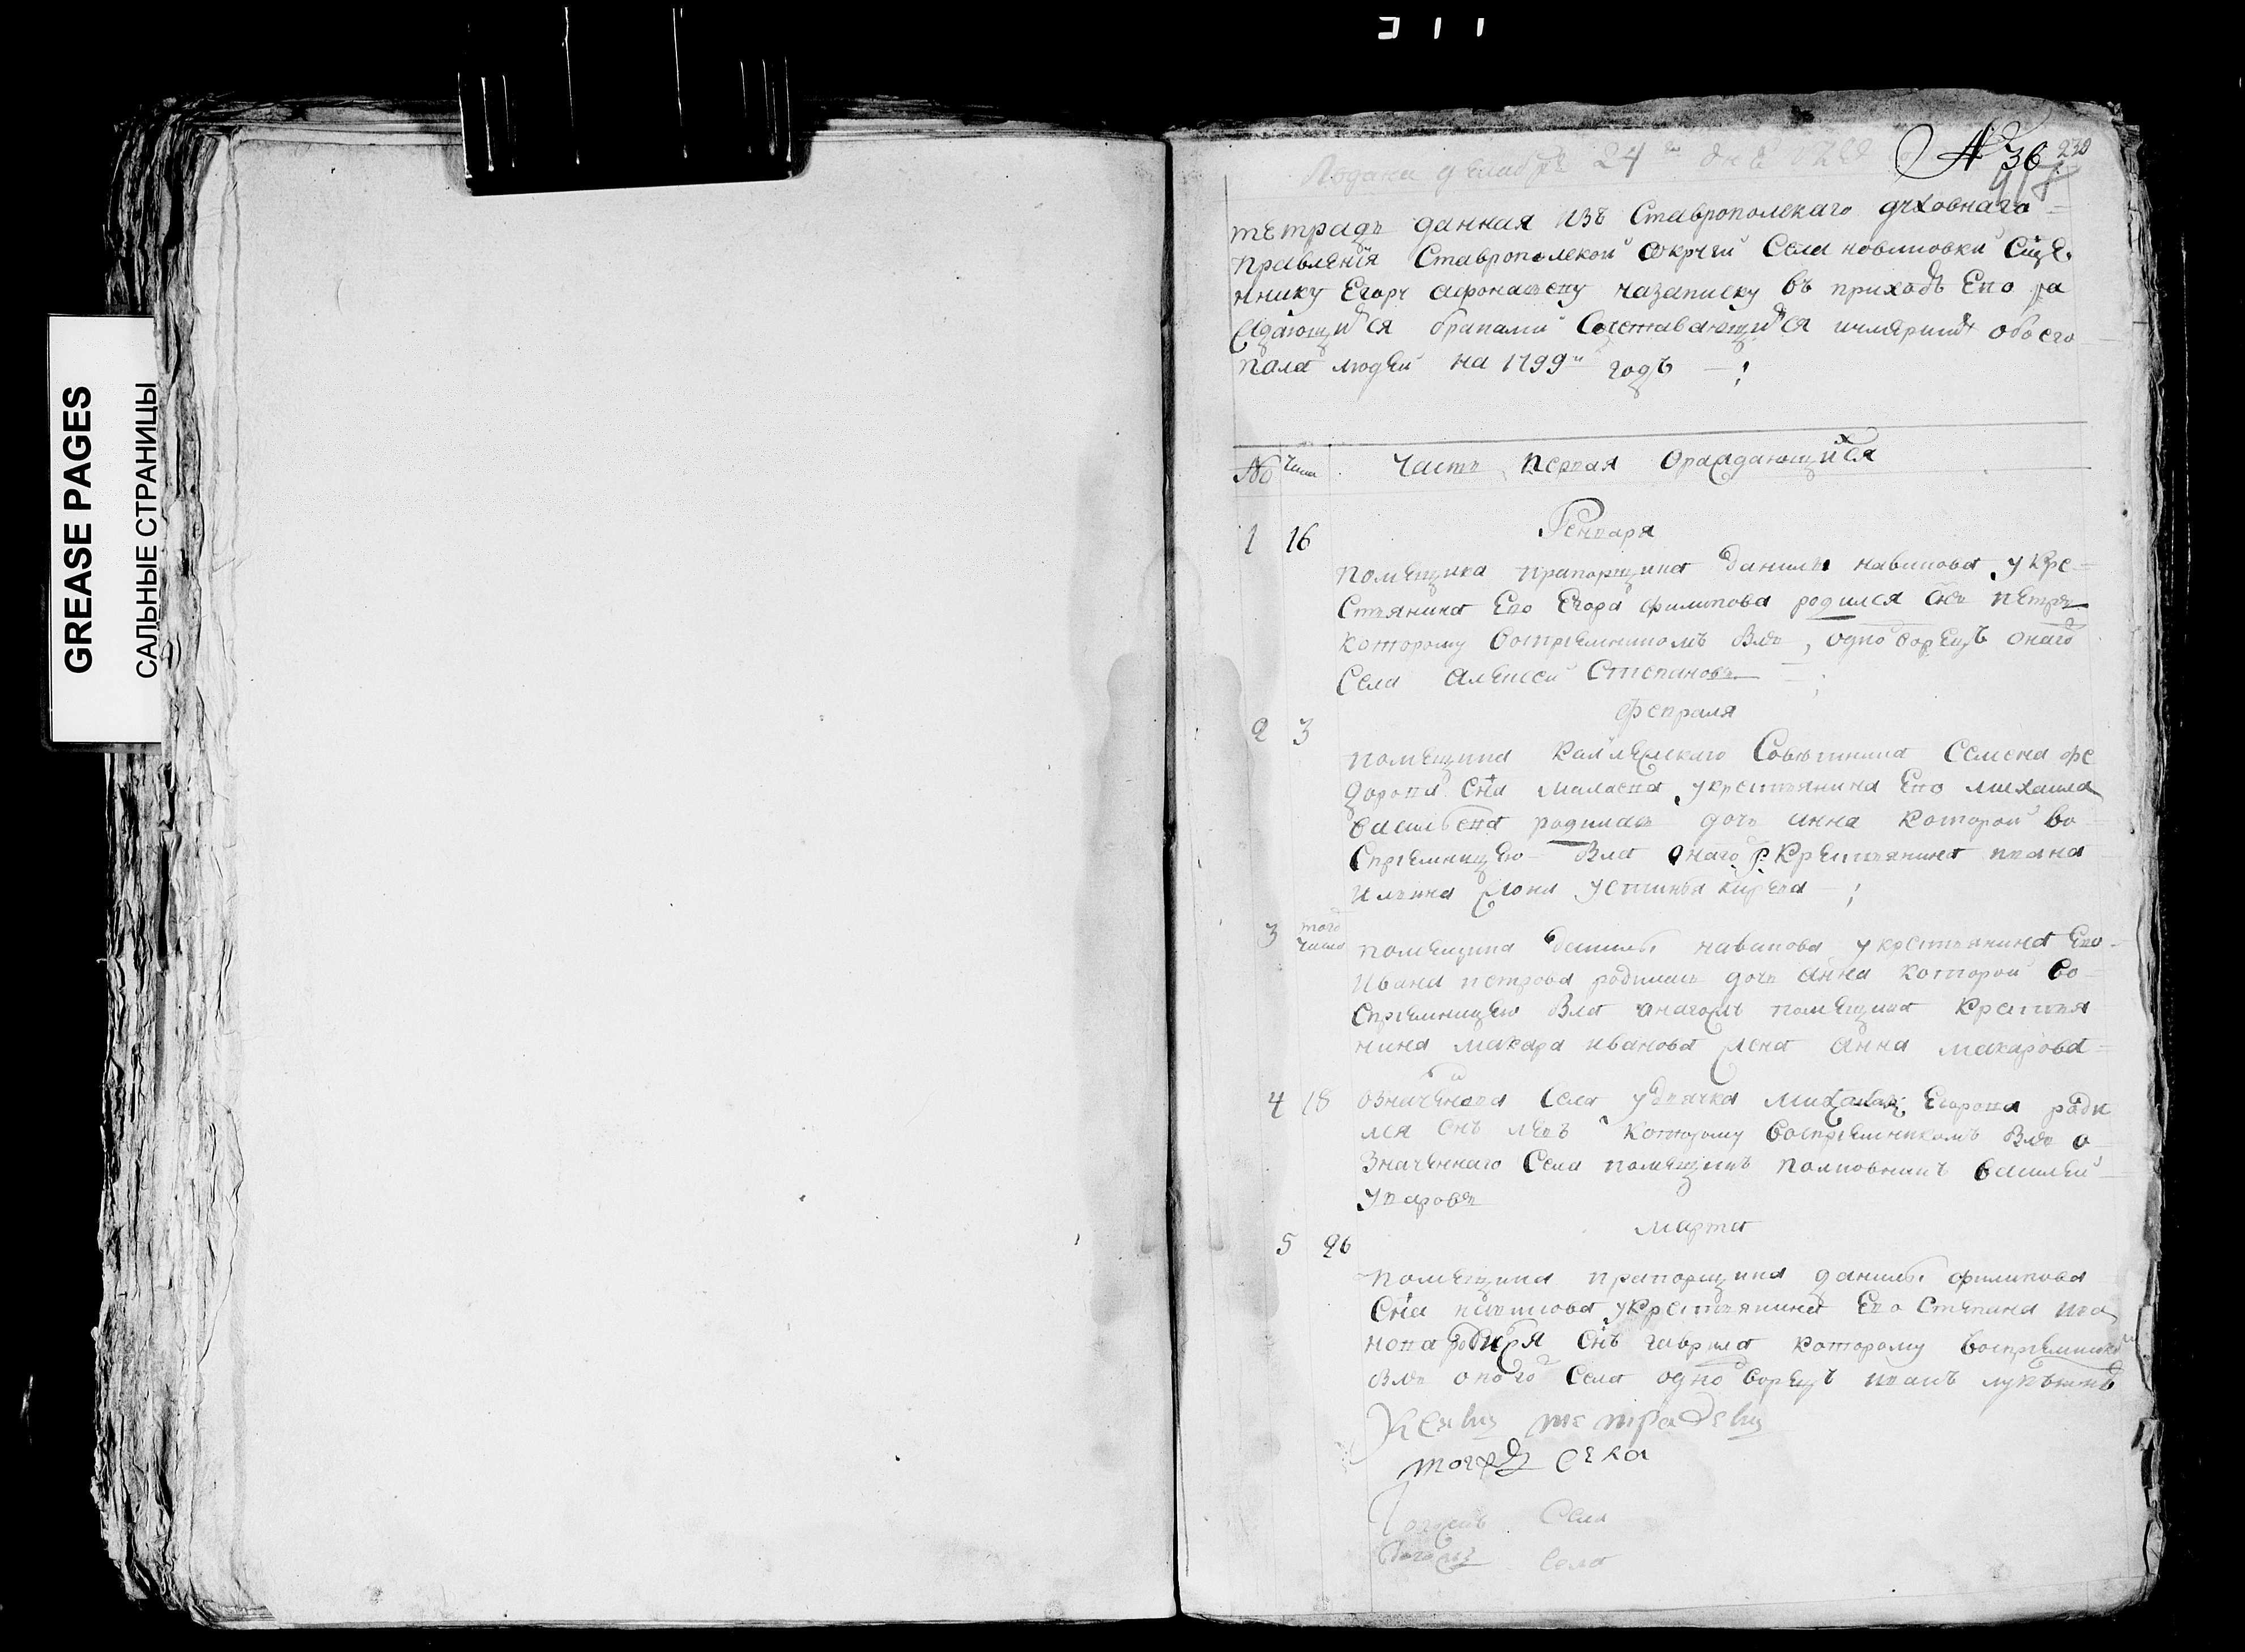 GREASE PAGES
САЛЬНЫЕ СТРАНИЦЫ
Подана декабря 24 дня
№ 36
230
тетрадь данная изъ Ставрополскаго духовнаго
правления Ставрополской округи Села новиковки Сще
ннику Егору афонасеву назаписку въ приходѣ Его ра
ждающихся браками Сочетавающихся иумерших обоего
пола людей на 1799й годъ
№ числа Часть первая Ораждающихся
Генваря
1 16
помещика прапорщика данилы навикова у кре
стьянина Его Егора филипова родился снъ петръ
которому воспрiемникомъ былъ, однодворецъ онаго
Села алексеи Степановъ
февраля
2 3
помещика Коллежскаго Советника Семена фе
дорова сна укрестьянина Его михаила
васильева родилась дочь анна которой во
спрiемницею была онаго крестьянина ивана
ильина жена устинья
3 того числа
помещика данилы навикова укрестьянина Его
Ивана петрова родилась дочь анна которой во
спрiемницею была онагожъ помещика крестья
нина макара иванова жена анна макарова
4 18 означеннаго Села удьячка михаила Егорова роди
лся снъ левъ которому воспрiемникомъ былъ о
значеннаго Села помещикъ полковникъ василей
уваровъ
марта
5 26
помещика прапорщика данилы филипова
сна новикова укрестьянина Его степана ива
нова родился снъ гаврила которому воспрiемником
былъ оного Села однодворецъ иванъ лукьяновъ
К сей тетраде
тогожъ села
Села
тогожъ Села